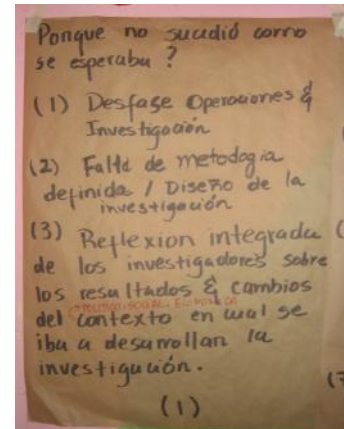 Porque no sucudió como
se esperaba ?
(1) Desfase Operaciones &
Investigación
(2) Falta de metodogia
definida / Diseño de la
investigación
(3) Reflexion integrada
de los investigadores sobre
los resultados & cambios
social
del contexto en cual se
iba a desarrollan la
investigación.
(1)